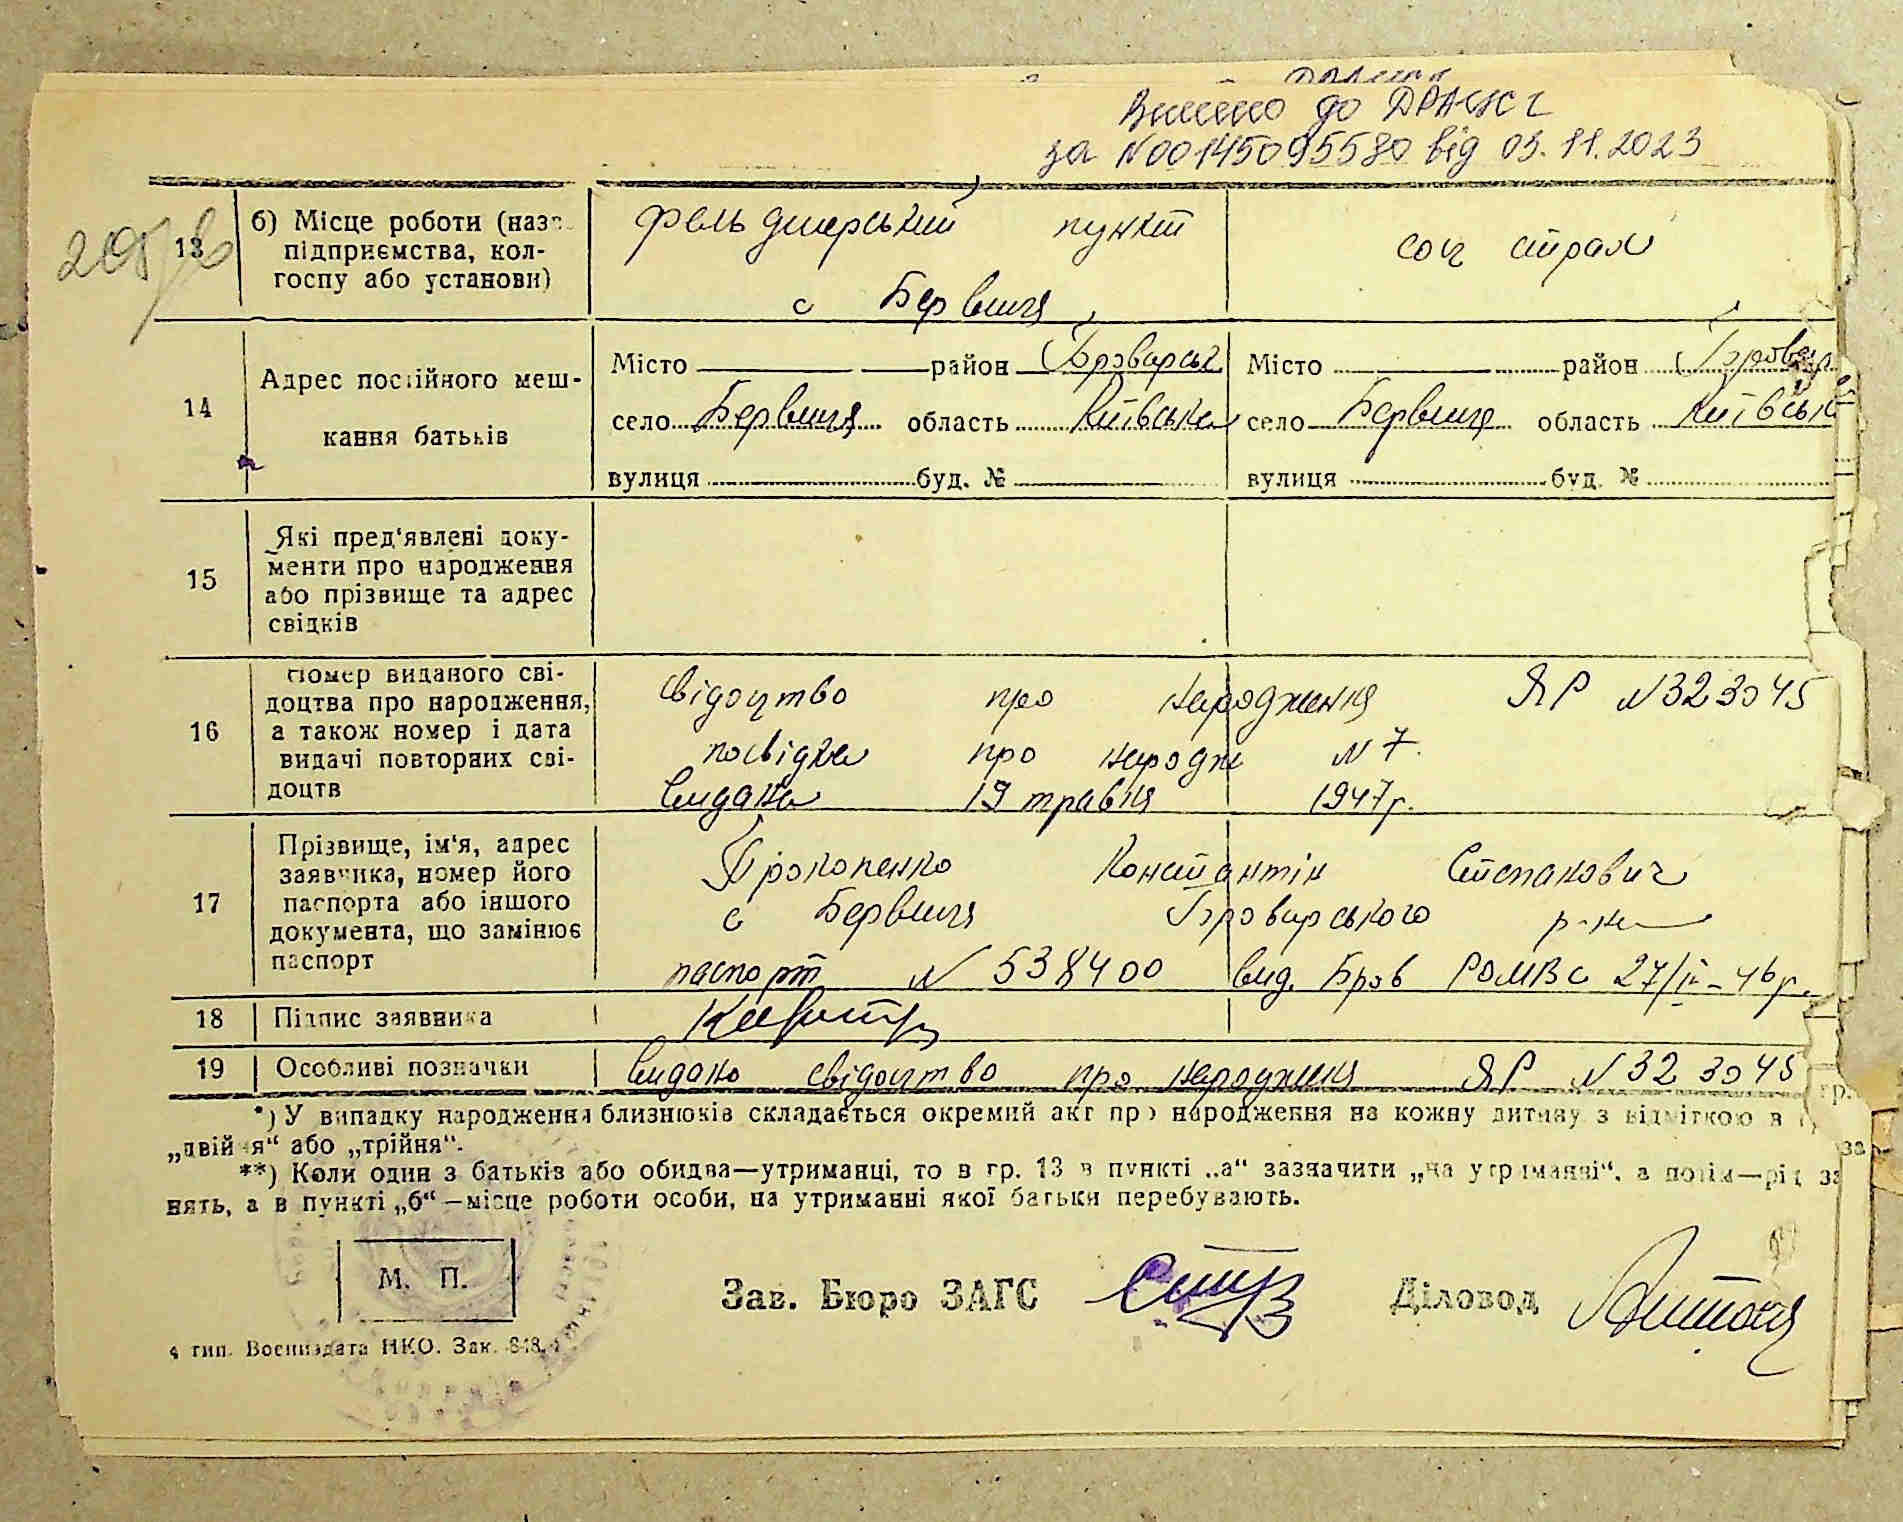 Внесено до ДРАЦСГ
за №00145095580 від 03.11.2023
13 б) Місце роботи (назва
підприємства, кол-
госпу або установи)
фельдшерський пункт
с Бервиця
соц страх
14 Адрес постійного меш-
кання батьків
Місто район Броварськ
село Бервиця область Київська
вулиця буд. №
Місто район Бровар
село Бервиця область Київськ
вулиця буд. №
15 Які пред'явлені доку-
менти про народження
або прізвище та адрес
свідків
16 Номер виданого сві-
доцтва про народження,
а також номер і дата
видачі повторних сві-
доцтв
Свідоцтво про народження ЯР №323045
посвідка про народж №7.
видана 19 травня 1947р.
17 Прізвище, ім'я, адрес
заявника, номер його
паспорта або іншого
документа, що замінює
паспорт
Прокопенко Константін Степанович
с Бервиця Броварського р-на
паспорт № 538400 вид. Бров РОМВС 27/II-46р.
18 Підпис заявника
19 Особливі позначки Видано свідоцтво про народження ЯР №323045
*) У випадку народження близнюків складається окремий акт про народження на кожну дитину з відміткою в гр.
„двійня“ або „трійня“.
**) Коли один з батьків або обидва—утриманці, то в гр. 13 в пункті „а“ зазначити „на утриманні“, а потім—рід за
нять, а в пункті „б“—місце роботи особи, на утриманні якої батьки перебувають.
М. П.
Зав. Бюро ЗАГС Діловод
4 тип. Воениздата НКО. Зак. 848.